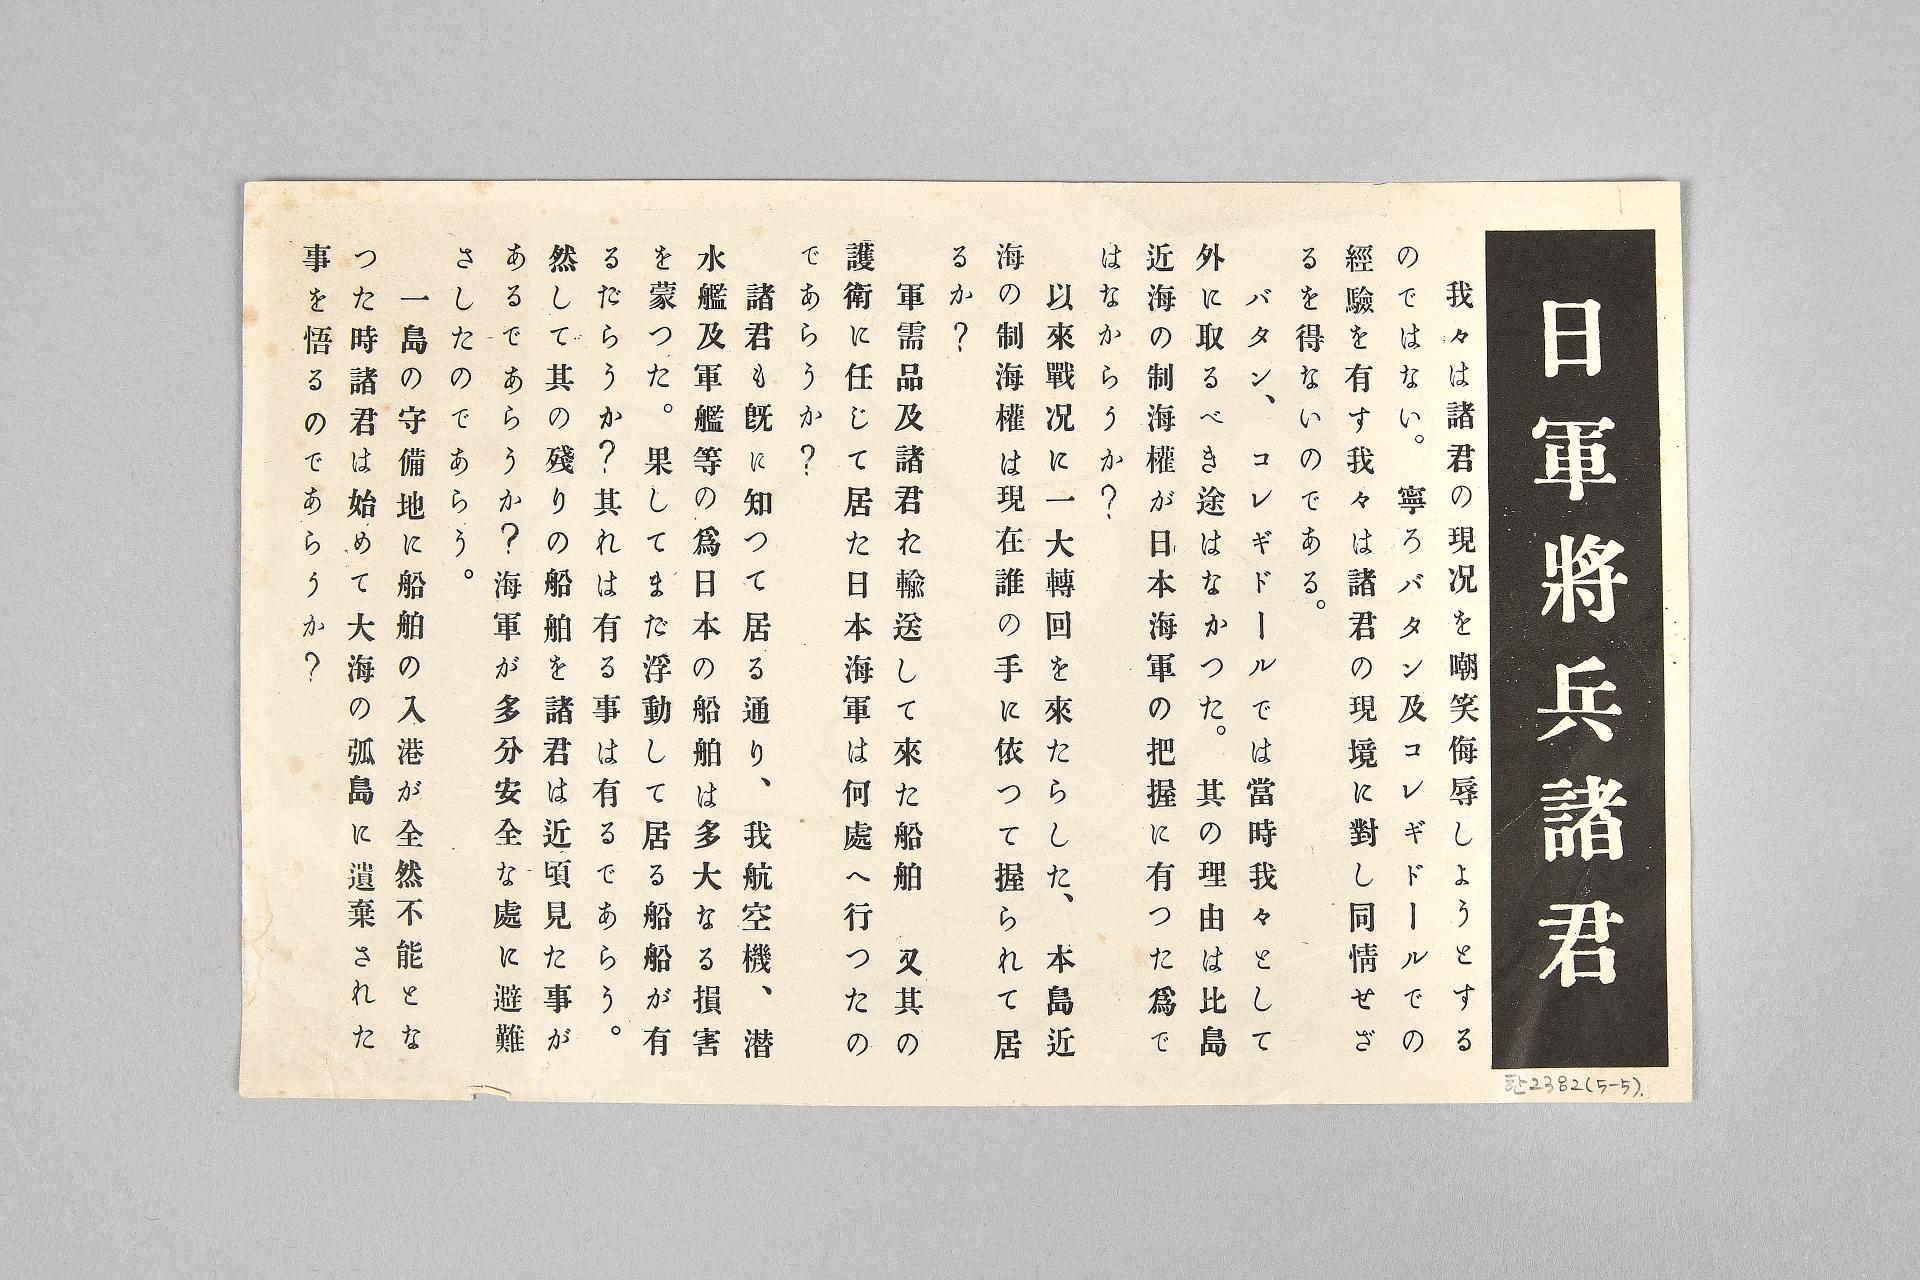 日軍將兵諸君
我々は諸君の現況を嘲笑侮辱しようとする
のではない。寧ろバタン及コレギドールでの
經驗を有す我々は諸君の現境に對し同情せざ
るを得ないのである。
バタン、コレギドールでは當時我々として
外に取るべき途はなかつた。其の理由は比島
近海の制海權が日本海軍の把握に有つた爲で
はなからうか?
以來戰況に一大轉回を來たらした、本島近
海の制海權は現在誰の手に依つて握られて居
るか?
軍需品及諸君れ輸送して來た船舶 又其の
護衛に任じて居た日本海軍は何處へ行つたの
であらうか?
諸君も既に知つて居る通り、我航空機、潜
水艦及軍艦等の爲日本の船舶は多大なる損害
を蒙つた。果してまだ浮動して居る船船が有
るだらうか?其れは有る事は有るであらう。
然して其の殘りの船舶を諸君は近頃見た事が
あるであらうか?海軍が多分安全な處に避難
さしたのであらう。
一島の守備地に船舶の入港が全然不能とな
つた時諸君は始めて大海の弧島に遺棄された
事を悟るのであらうか?
2382(5-5).